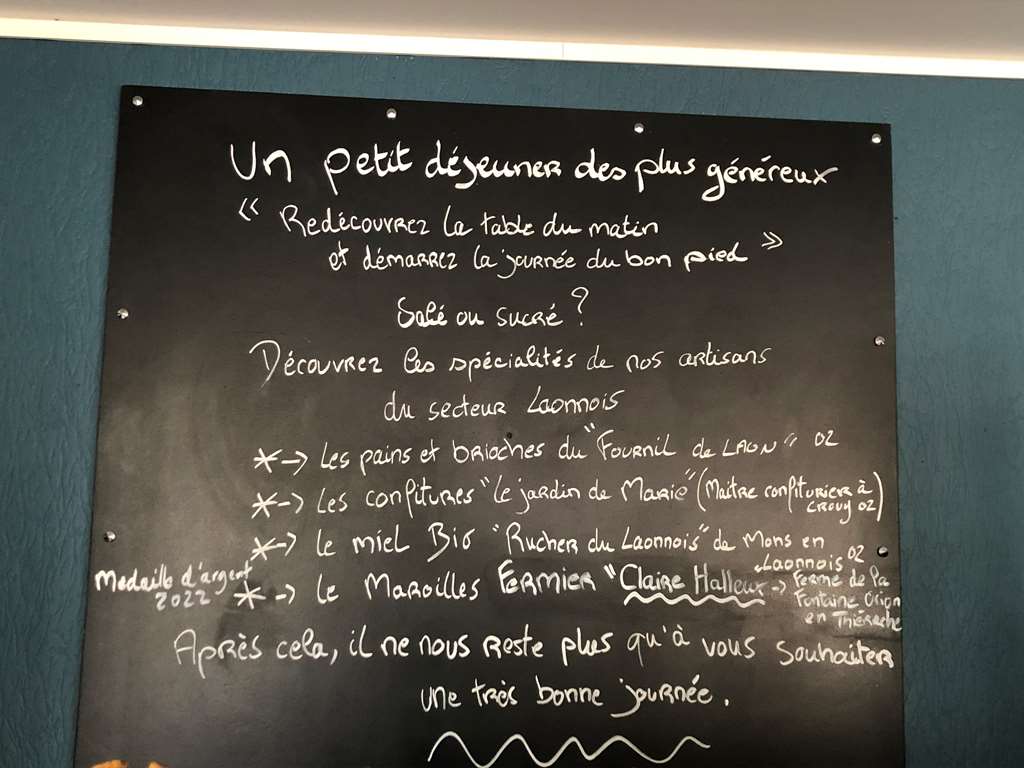 Un petit déjeuner des plus généreux
« Redécouvrez la table du matin
et démarrez la journée du bon pied »
Salé ou sucré ?
Découvrez les spécialités de nos artisans
du secteur Laonnois
*-> Les pains et brioches du "Fournil de LAON" 02
*-> Les confitures "Le jardin de Marie" (Maître confiturier à
Crouy 02)
*-> le miel Bio "Rucher du Laonnois" de Mons en
Laonnois 02
Medaille d'argent
2022
*-> le Maroilles Fermier "Claire Halleux -> Ferme de la
Fontaine Orion
en Thiérache
Après cela, il ne nous reste plus qu'à vous souhaiter
une très bonne journée.